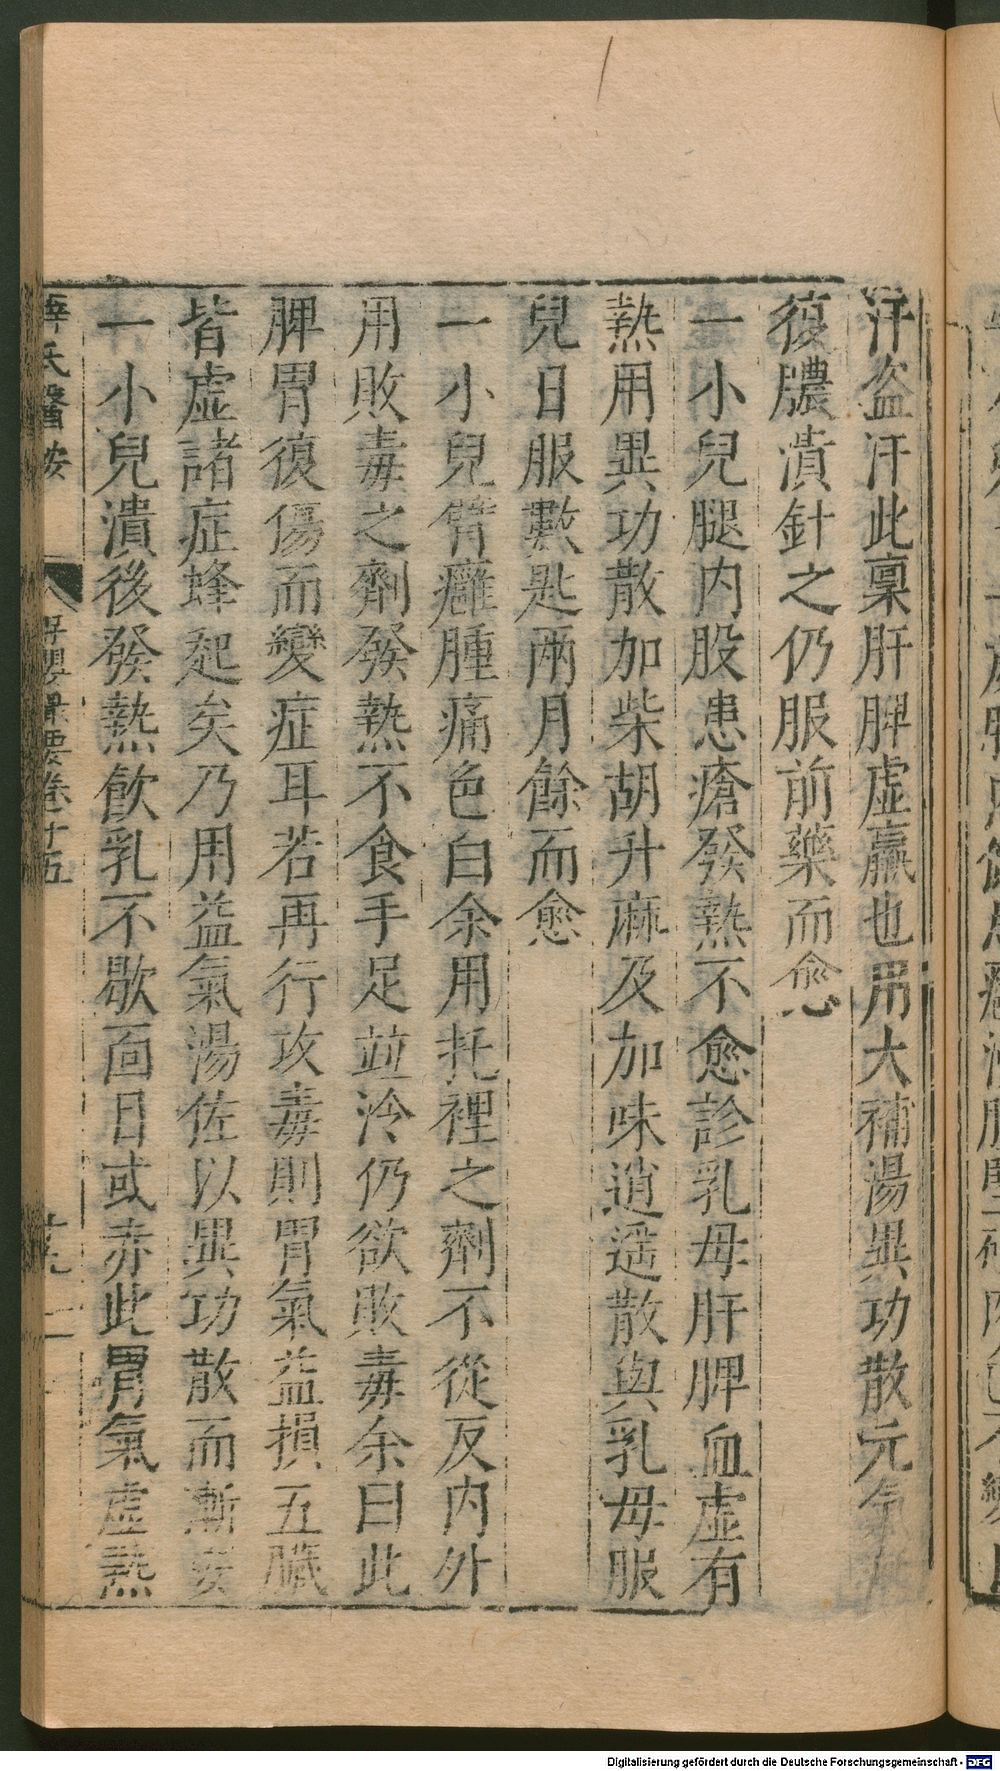 汗盗汗此稟肝脾虛羸也用大補湯異功散元氣
復膿潰針之仍服前藥而愈
一小兒腿内股患瘡發熱不愈診乳母肝脾血虛有
熱用異功散加柴胡升麻及加味逍遥散與乳母服
兒日服數匙兩月餘而愈
一小兒臂癰腫痛色白余用托裡之劑不從反内外
用敗毒之劑發熱不食手足並冷仍欲敗毒余曰此
脾胃復傷而變症耳若再行攻毒則胃氣益損五臟
皆虛諸症蜂起矣乃用益氣湯佐以異功散而漸安
一小兒潰後發熱飲乳不歇面目或赤此胃氣虛熱
薛氏醫按
保嬰撮要卷十五
十九
Digitalisierung gefördert durch die Deutsche Forschungsgemeinschaft - DFG